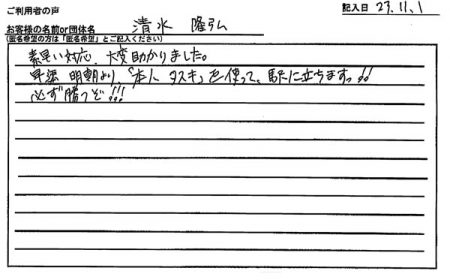 ご利用者の声
記入日 27.11.1
お客様の名前or団体名 清水 隆弘
(匿名希望の方は「匿名希望」とご記入ください)
素早い対応、大変助かりました。
早速 明朝より、「本人タスキ」を使って、駅に立ちます。!!
必ず勝つぞ!!!